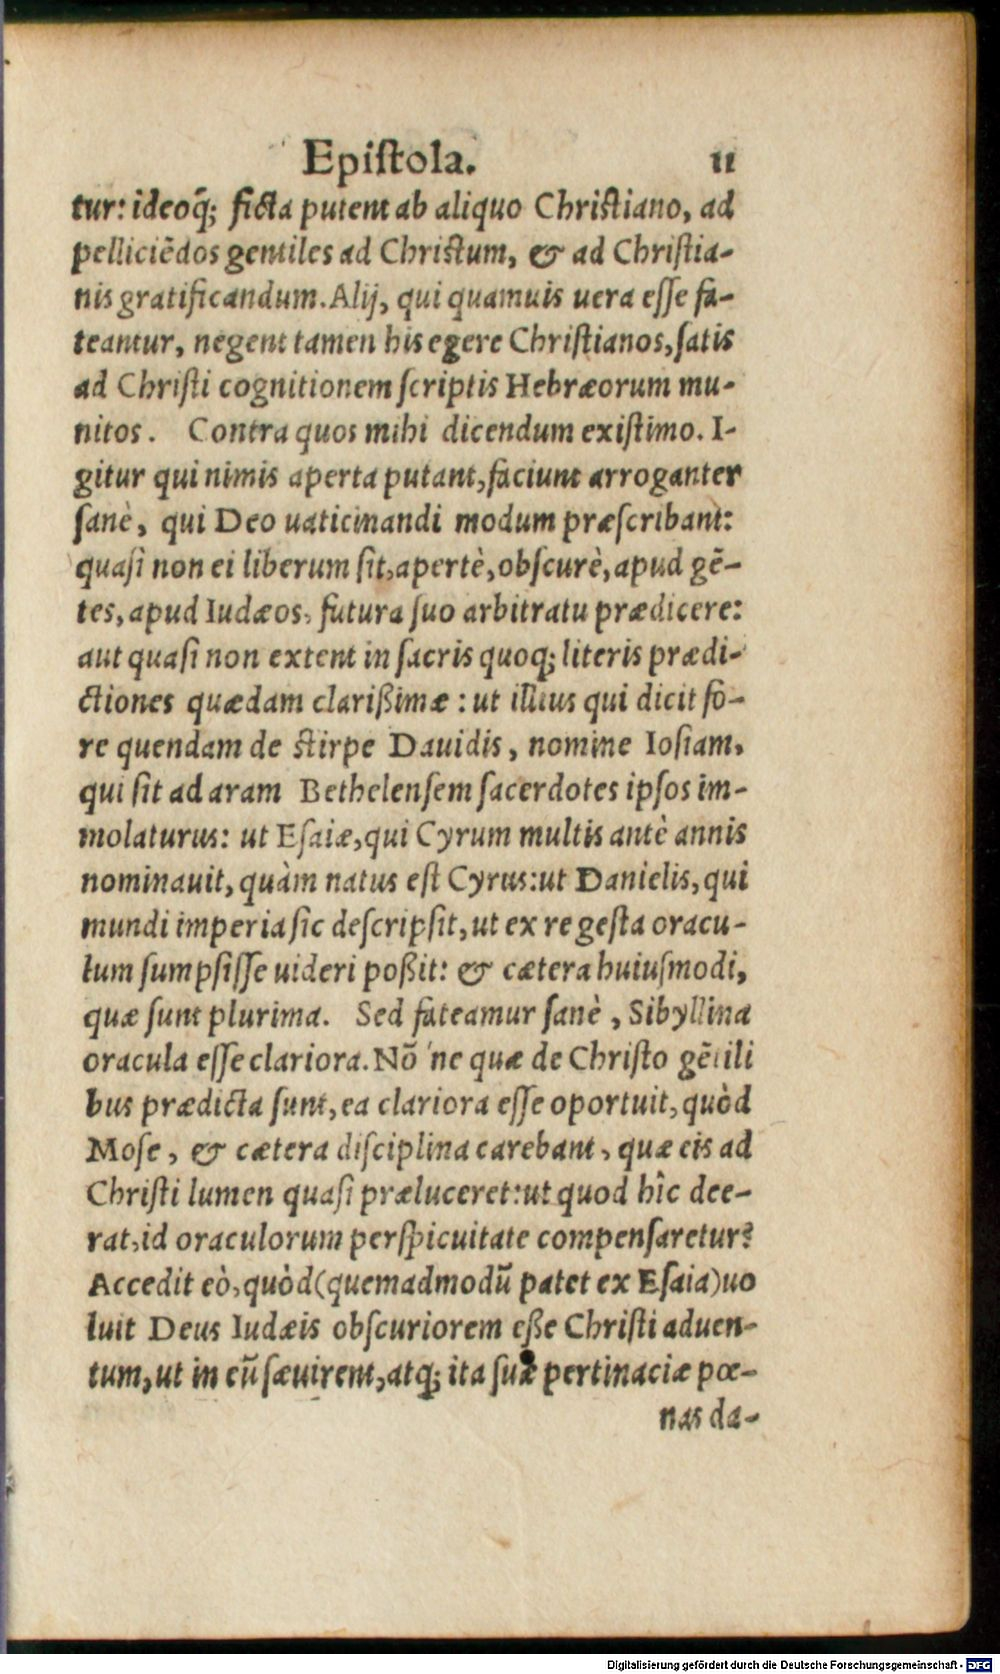 Epistola. 11
tur: ideoq̃; ficta putent ab aliquo Christiano, ad
pelliciẽdos gentiles ad Christum, & ad Christia-
nis gratificandum. Alij, qui quamuis uera esse fa-
teantur, negent tamen his egere Christianos, satis
ad Christi cognitionem scriptis Hebræorum mu-
nitos. Contra quos mihi dicendum existimo. I-
gitur qui nimis aperta putant, faciunt arroganter
sanè, qui Deo uaticinandi modum præscribant:
quasi non ei liberum sit, apertè, obscurè, apud gẽ-
tes, apud Iudæos, futura suo arbitratu prædicere:
aut quasi non extent in sacris quoq; literis prædi-
ctiones quædam clarißimæ: ut illius qui dicit fo-
re quendam de stirpe Dauidis, nomine Iosiam,
qui sit ad aram Bethelensem sacerdotes ipsos im-
molaturus: ut Esaiæ, qui Cyrum multis antè annis
nominauit, quàm natus est Cyrus: ut Danielis, qui
mundi imperia sic descripsit, ut ex re gesta oracu-
lum sumpsisse uideri poßit: & cætera huiusmodi,
quæ sunt plurima. Sed fateamur sanè, Sibyllina
oracula esse clariora. Nõ ne quæ de Christo gẽtili
bus prædicta sunt, ea clariora esse oportuit, quòd
Mose, & cætera disciplina carebant, quæ eis ad
Christi lumen quasi præluceret: ut quod hîc dee-
rat, id oraculorum perspicuitate compensaretur?
Accedit eò, quòd (quemadmodũ patet ex Esaia) uo
luit Deus Iudæis obscuriorem eße Christi aduen-
tum, ut in eũ sæuirent, atq; ita suæ pertinaciæ pœ-
nas da-
Digitalisierung gefördert durch die Deutsche Forschungsgemeinschaft - DFG